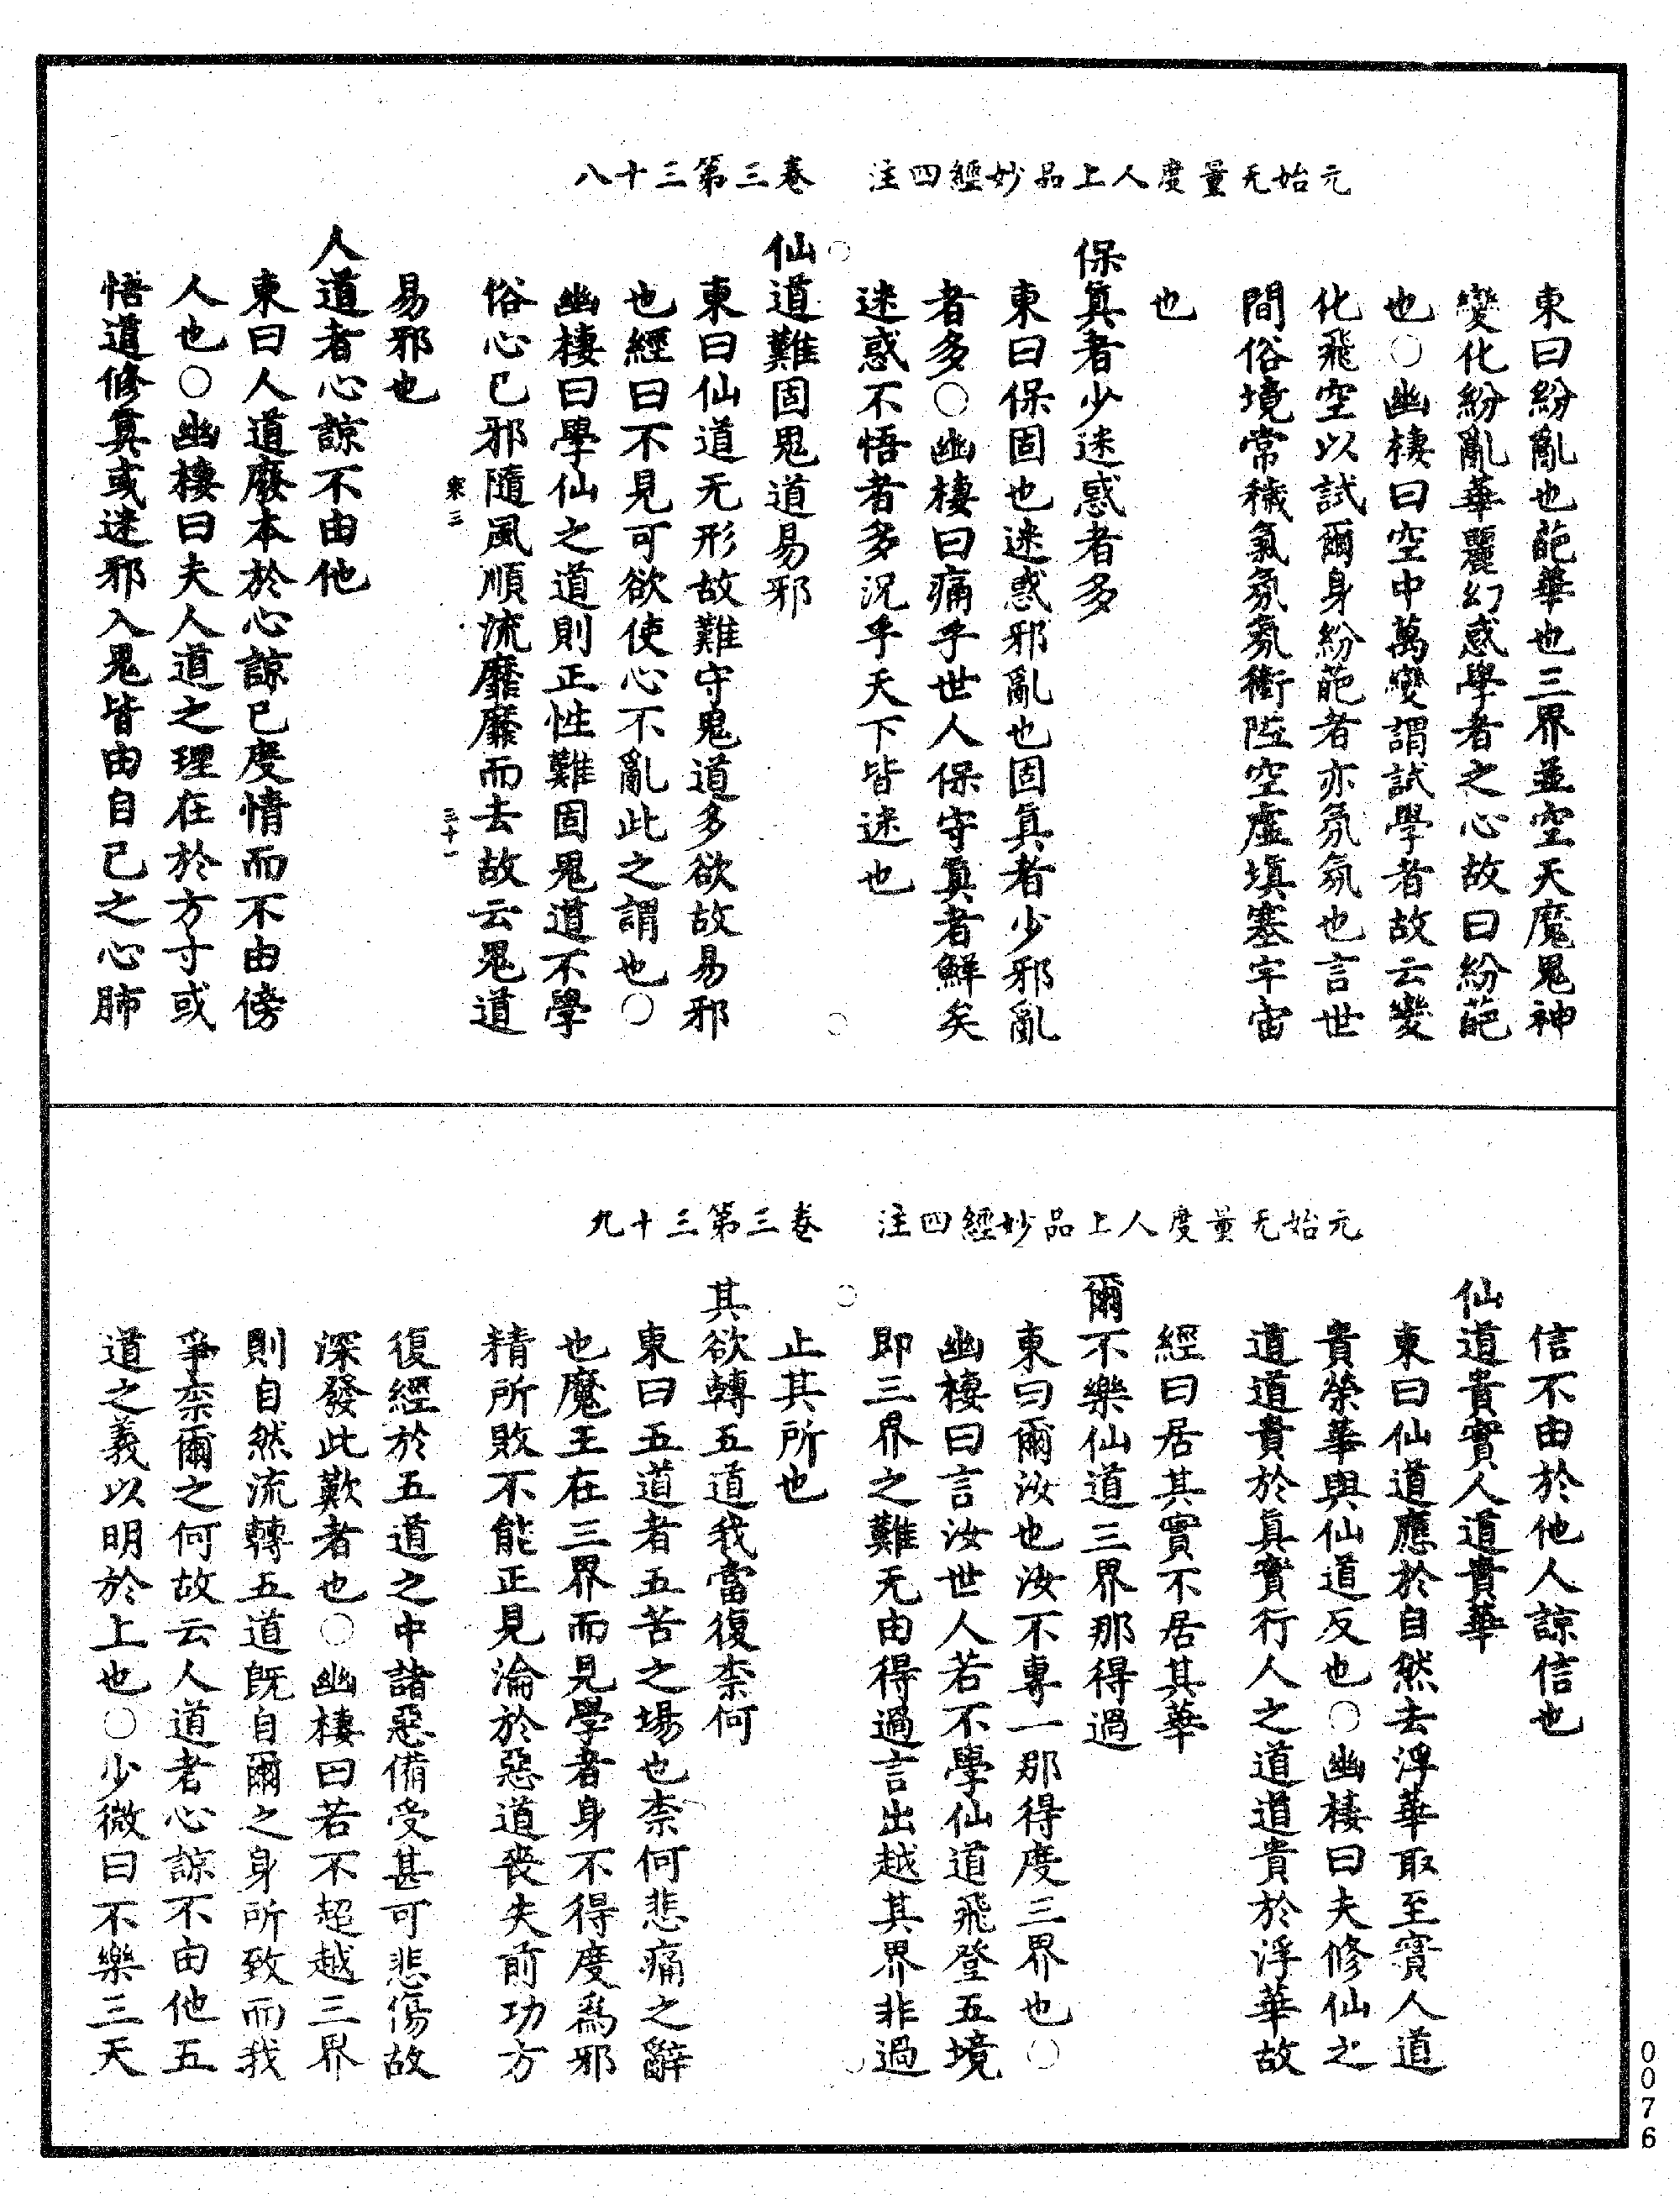 元始无量度人上品妙經四注　卷三第三十八
東曰紛亂也葩華也三界並空天魔鬼神
變化紛亂華麗幻惑學者之心故曰紛葩
也○幽棲曰空中萬變謂試學者故云變
化飛空以試爾身紛葩者亦氛氛也言世
間俗境常穢氣氛氛衝陞空虛塡塞宇宙
也
保眞者少迷惑者多
東曰保固也迷惑邪亂也固眞者少邪亂
者多○幽棲曰痛乎世人保守眞者鮮矣
迷惑不悟者多況乎天下皆迷也
仙道難固鬼道易邪
東曰仙道无形故難守鬼道多欲故易邪
也經曰不見可欲使心不亂此之謂也○
幽棲曰學仙之道則正性難固鬼道不學
俗心已邪隨風順流靡靡而去故云鬼道
三十一
易邪也
人道者心諒不由他
東曰人道廢本於心諒已度情而不由傍
人也○幽棲曰夫人道之理在於方寸或
悟道修眞或迷邪入鬼皆由自己之心肺
元始无量度人上品妙經四注　卷三第三十九
信不由於他人諒信也
仙道貴實人道貴華
東曰仙道應於自然去浮華取至實人道
貴榮華與仙道反也○幽棲曰夫修仙之
道道貴於眞實行人之道道貴於浮華故
經曰居其實不居其華
爾不樂仙道三界那得過
東曰爾汝也汝不專一那得度三界也○
幽棲曰言汝世人若不學仙道飛登五境
即三界之難无由得過言出越其界非過
止其所也
其欲轉五道我當復柰何
東曰五道者五苦之場也柰何悲痛之辭
也魔王在三界而見學者身不得度爲邪
精所敗不能正見淪於惡道喪失前功方
復經於五道之中諸惡備受甚可悲傷故
深發此歎者也○幽棲曰若不超越三界
則自然流轉五道旣自爾之身所致而我
爭柰爾之何故云人道者心諒不由他五
道之義以明於上也○少微曰不樂三天
0076